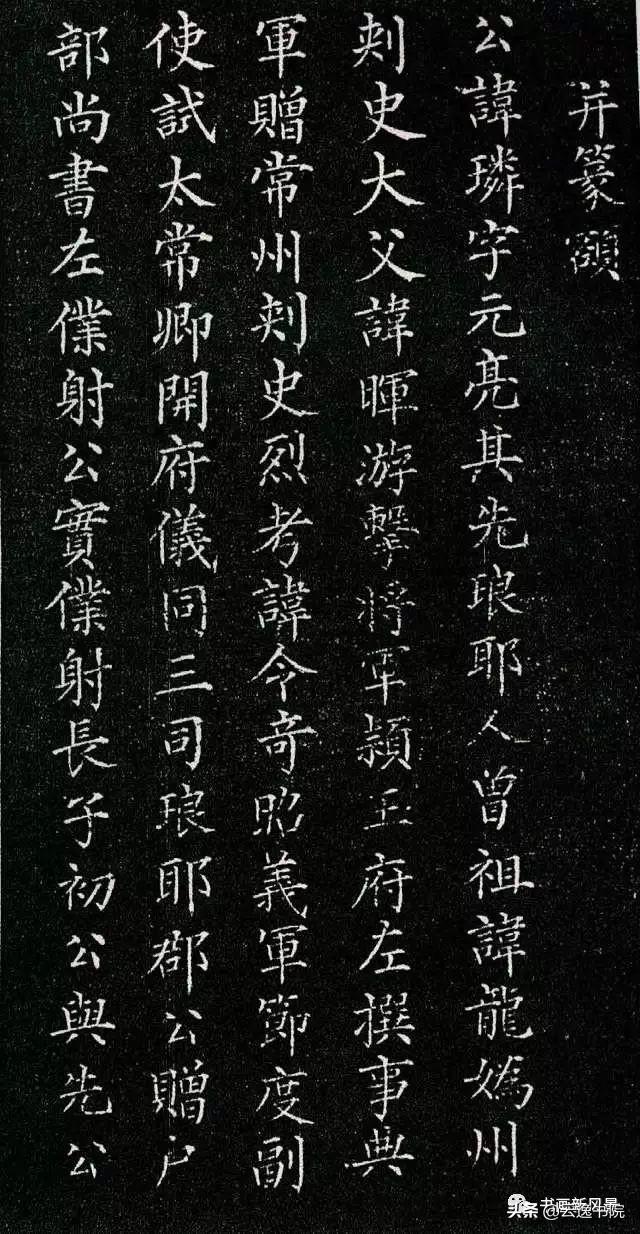 并篆額
公諱璘字元亮其先琅耶人曾祖諱龍嬀州
刾史大父諱暉游擊將軍潁王府左撰事典
軍贈常州刾史烈考諱令奇昭義軍節度副
使試太常卿開府儀同三司琅耶郡公贈户
部尚書左僕射公實僕射長子初公與先公
书画新风景
头条@云逸书院